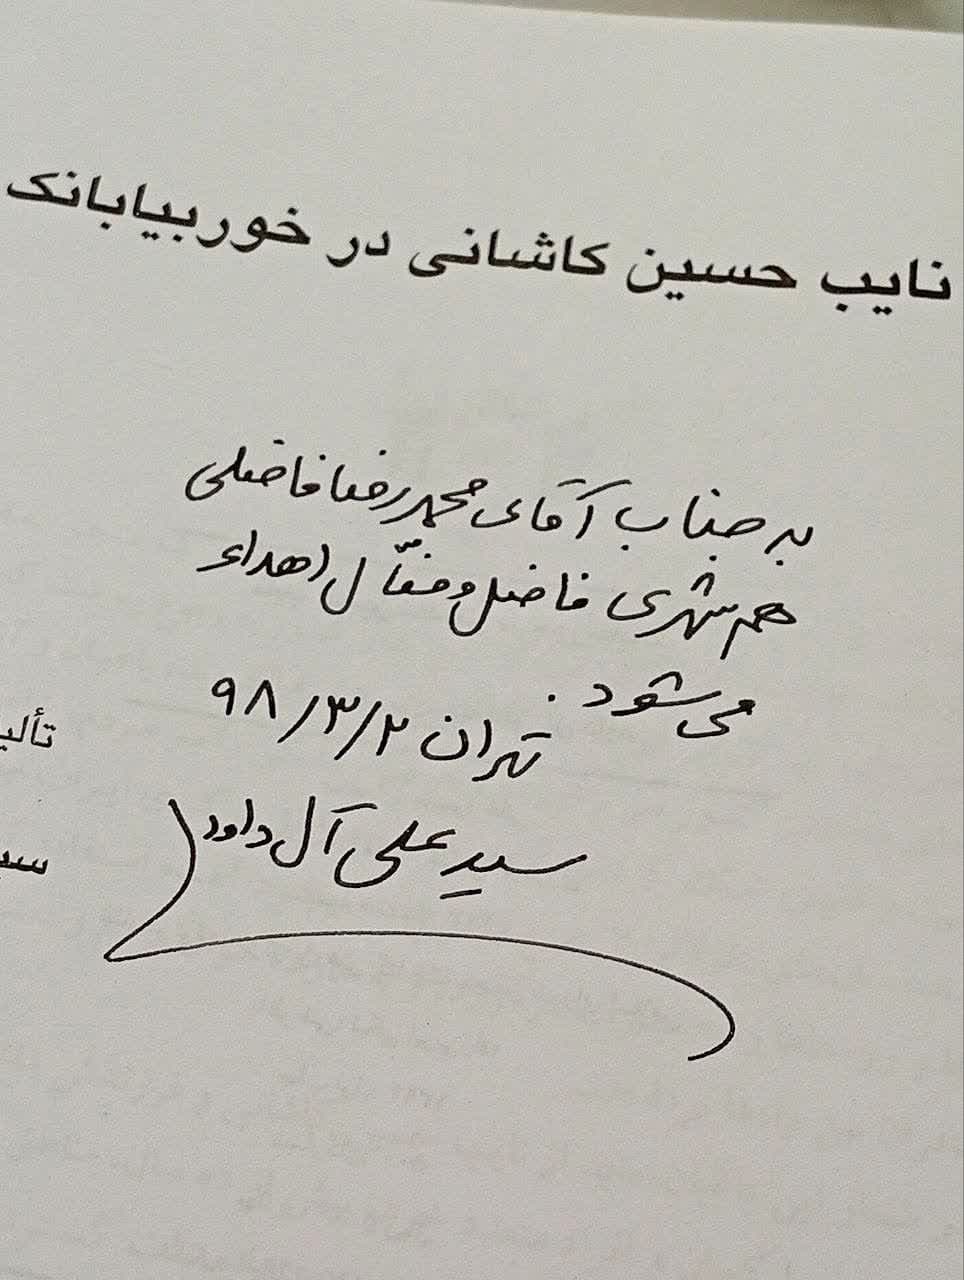 نایب حسین کاشانی در خوربیابانک
به جناب آقای محمدرضا فاضلی
هم شهری فاضل و فعّال اهداء
می‌شود.
تهران ۹۸/۳/۲
سید علی آل داود